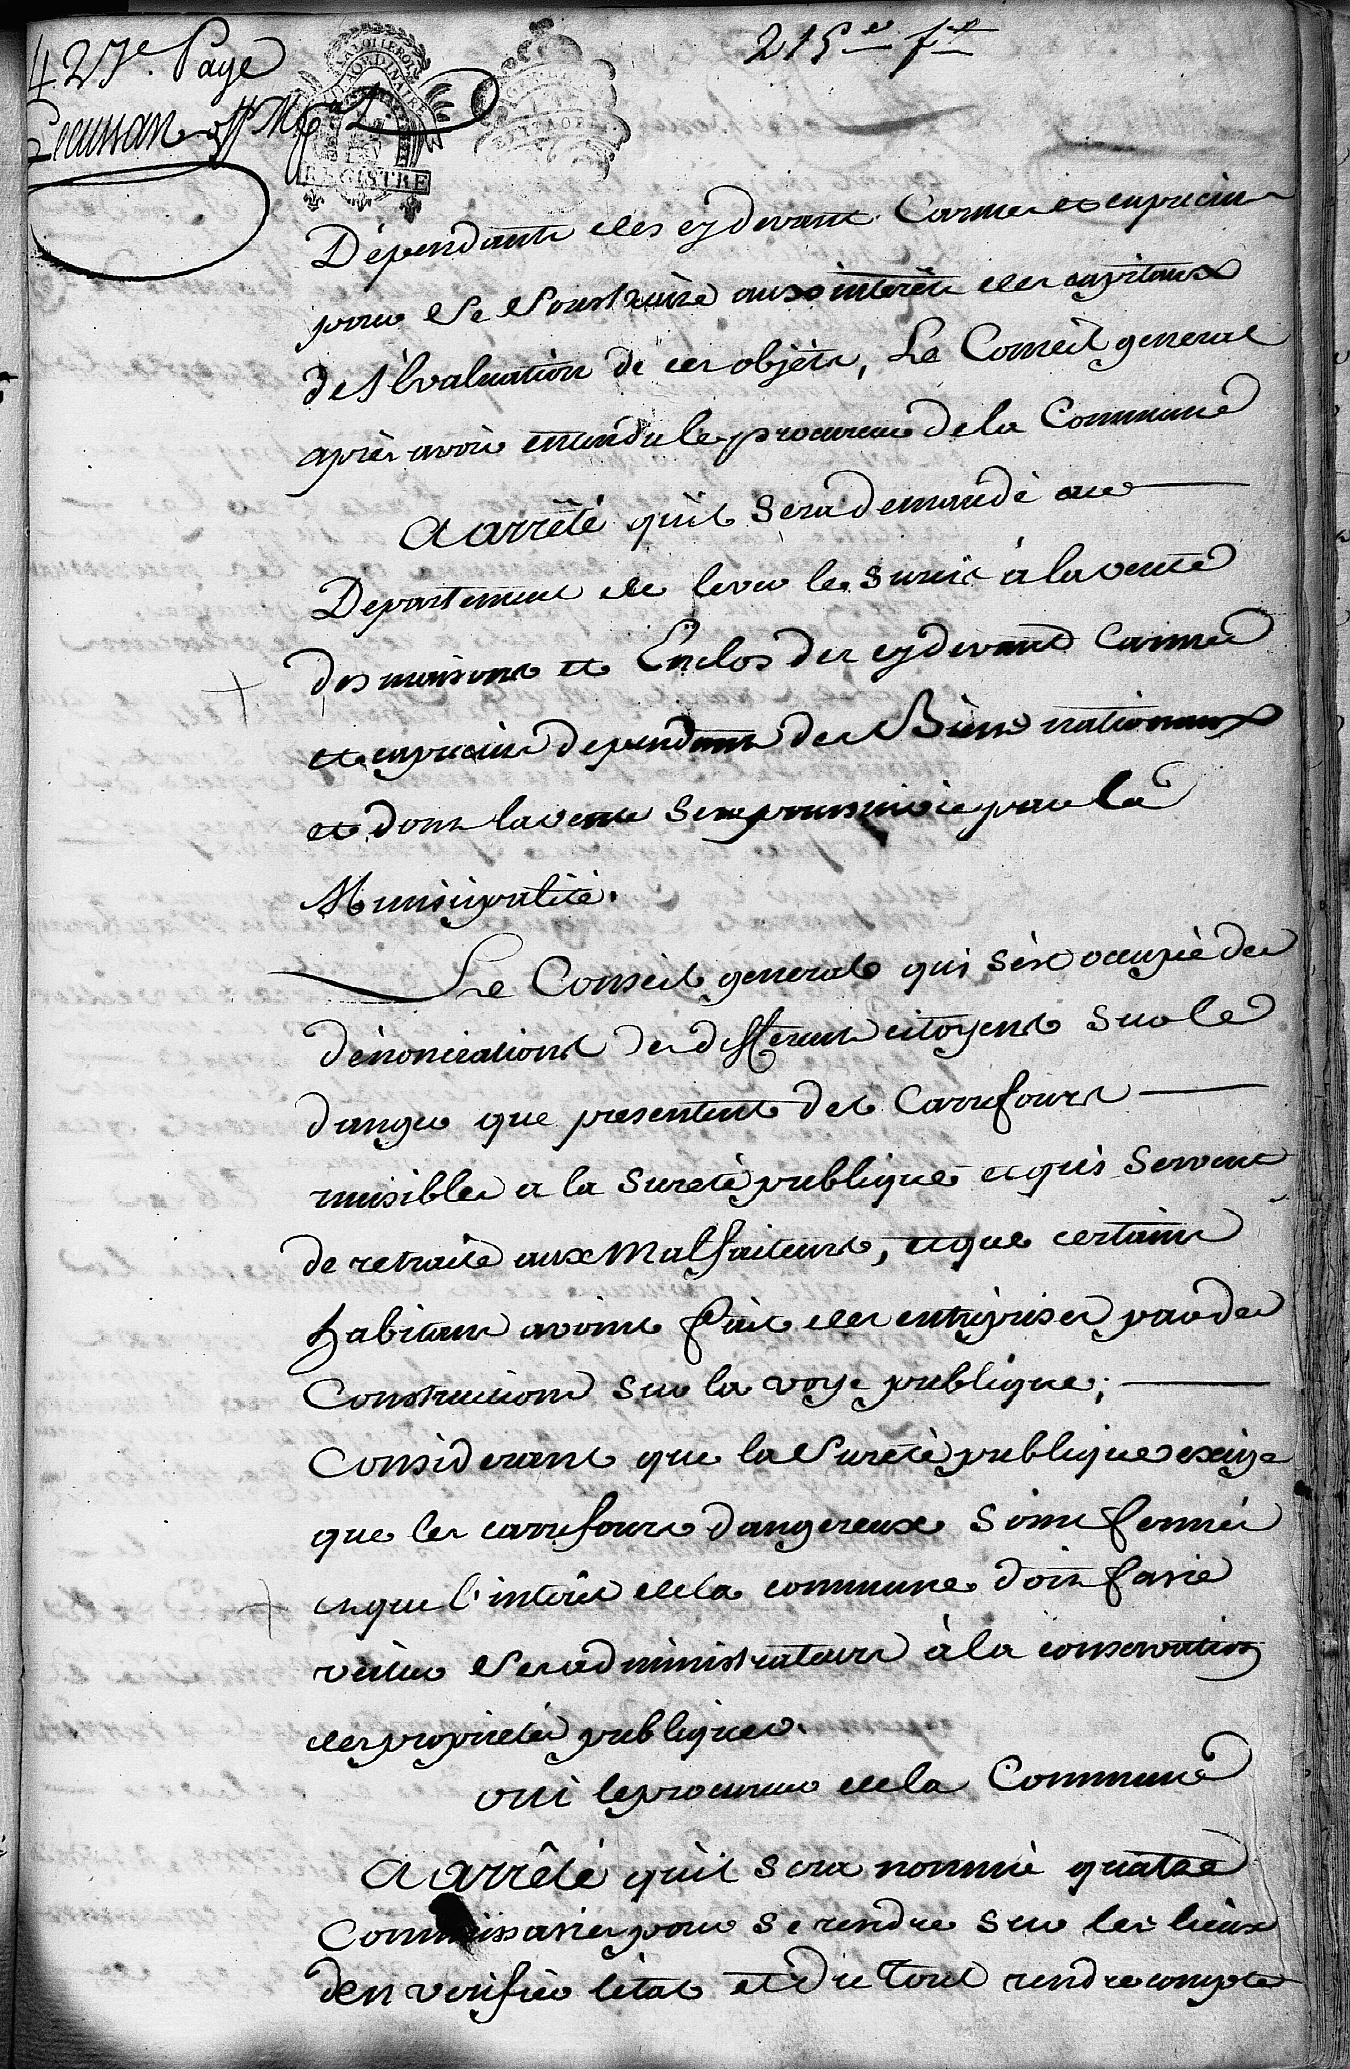 427e. Page
215e ft
REGISTRE
Dependante des cydevant Carmes et capucins
pour se soustraire aux interêts des capitaux
de l'évaluation de ces objèts, Le Conseil general
après avoir entendu le procureur de la Commune
a arrêté qu'il sera demandé au
Departement de lever le sursis à la vente
des maisons et Enclos des cydevant Carmes
et capucins dependant des Biens nationaux
et dont la vente sera poursuivie par la
Municipalité.
Le Conseil general qui s'est occupé des
dénonciations de differents citoyens sur le
danger que presentent des Carrefours
nuisibles a la sureté publique et qui servent
de retraite aux Malfaiteurs, et que certains
habitans avoint fait des entreprises par des
Constructions sur la voye publique;
Considerant que la sureté publique exige
que les carrefours dangereux soint fermés
et que l'interêt de la commune doit faire
veiller ses administrateurs à la conservation
des proprietés publiques.
oui le procureur de la Commune
a arrêté qu'il sera nommé quatre
Commissaires pour se rendre sur les lieux
d'en verifier l'état et du tout rendre compte